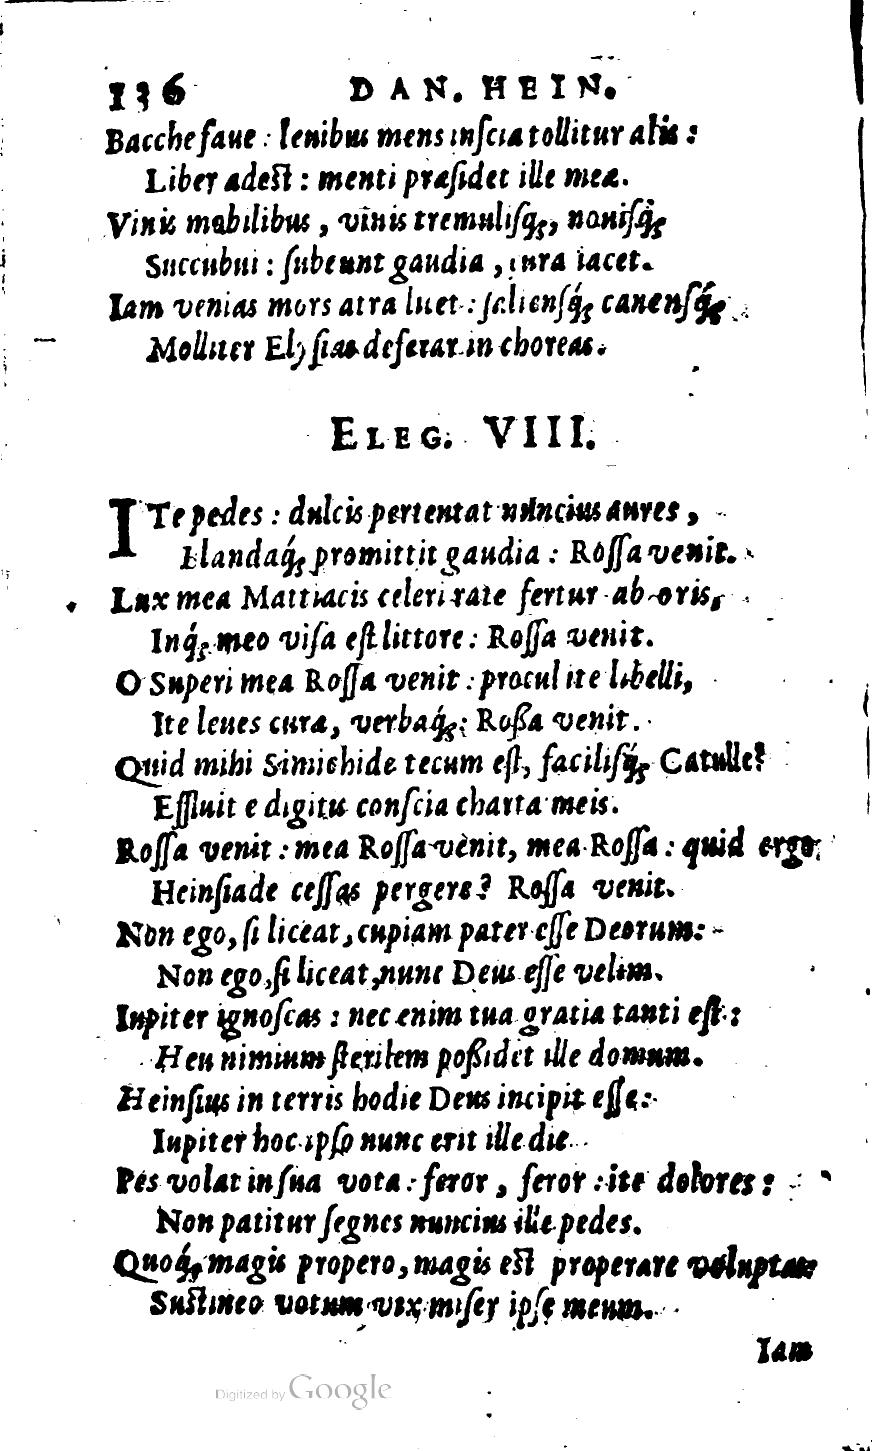 136 DAN. HEIN.
Bacche faue : lenibus mens inſcia tollitur alis :
Liber adeſt : menti præſidet ille meæ.
Vinis mobilibus, vinis tremuliſq́;, noniſq́;
Succubui : ſubeunt gaudia, cura iacet.
Iam venias mors atra licet : ſalienſq́; canenſq́;
Molliter Elyſias deferar in choreas.
ELEG. VIII.
ITe pedes : dulcis pertentat nuncius aures,
Blandaq́; promittit gaudia : Roſſa venit.
Lux mea Mattiacis celeri rate fertur ab oris,
Inq́; meo viſa eſt littore : Roſſa venit.
O Superi mea Roſſa venit : procul ite libelli,
Ite leues cura, verbaq́; : Roßa venit.
Quid mihi Simichide tecum eſt, faciliſq́; Catulle?
Effluit e digitis conſcia charta meis.
Roſſa venit : mea Roſſa venit, mea Roſſa : quid ergo
Heinſiade ceſſas pergere? Roſſa venit.
Non ego, ſi liceat, cupiam pater eſſe Deorum :
Non ego, ſi liceat, nunc Deus eſſe velim.
Iupiter ignoſcas : nec enim tua gratia tanti eſt :
Heu nimium ſterilem poßidet ille domum.
Heinſius in terris hodie Deus incipit eſſe :
Iupiter hoc ipſo nunc erit ille die.
Pes volat in ſua vota : feror, feror : ite dolores :
Non patitur ſegnes nuncius ille pedes.
Quoq́; magis propero, magis eſt properare voluptas
Suſtineo votum vix miſer ipſe meum.
Iam
Digitized by Google